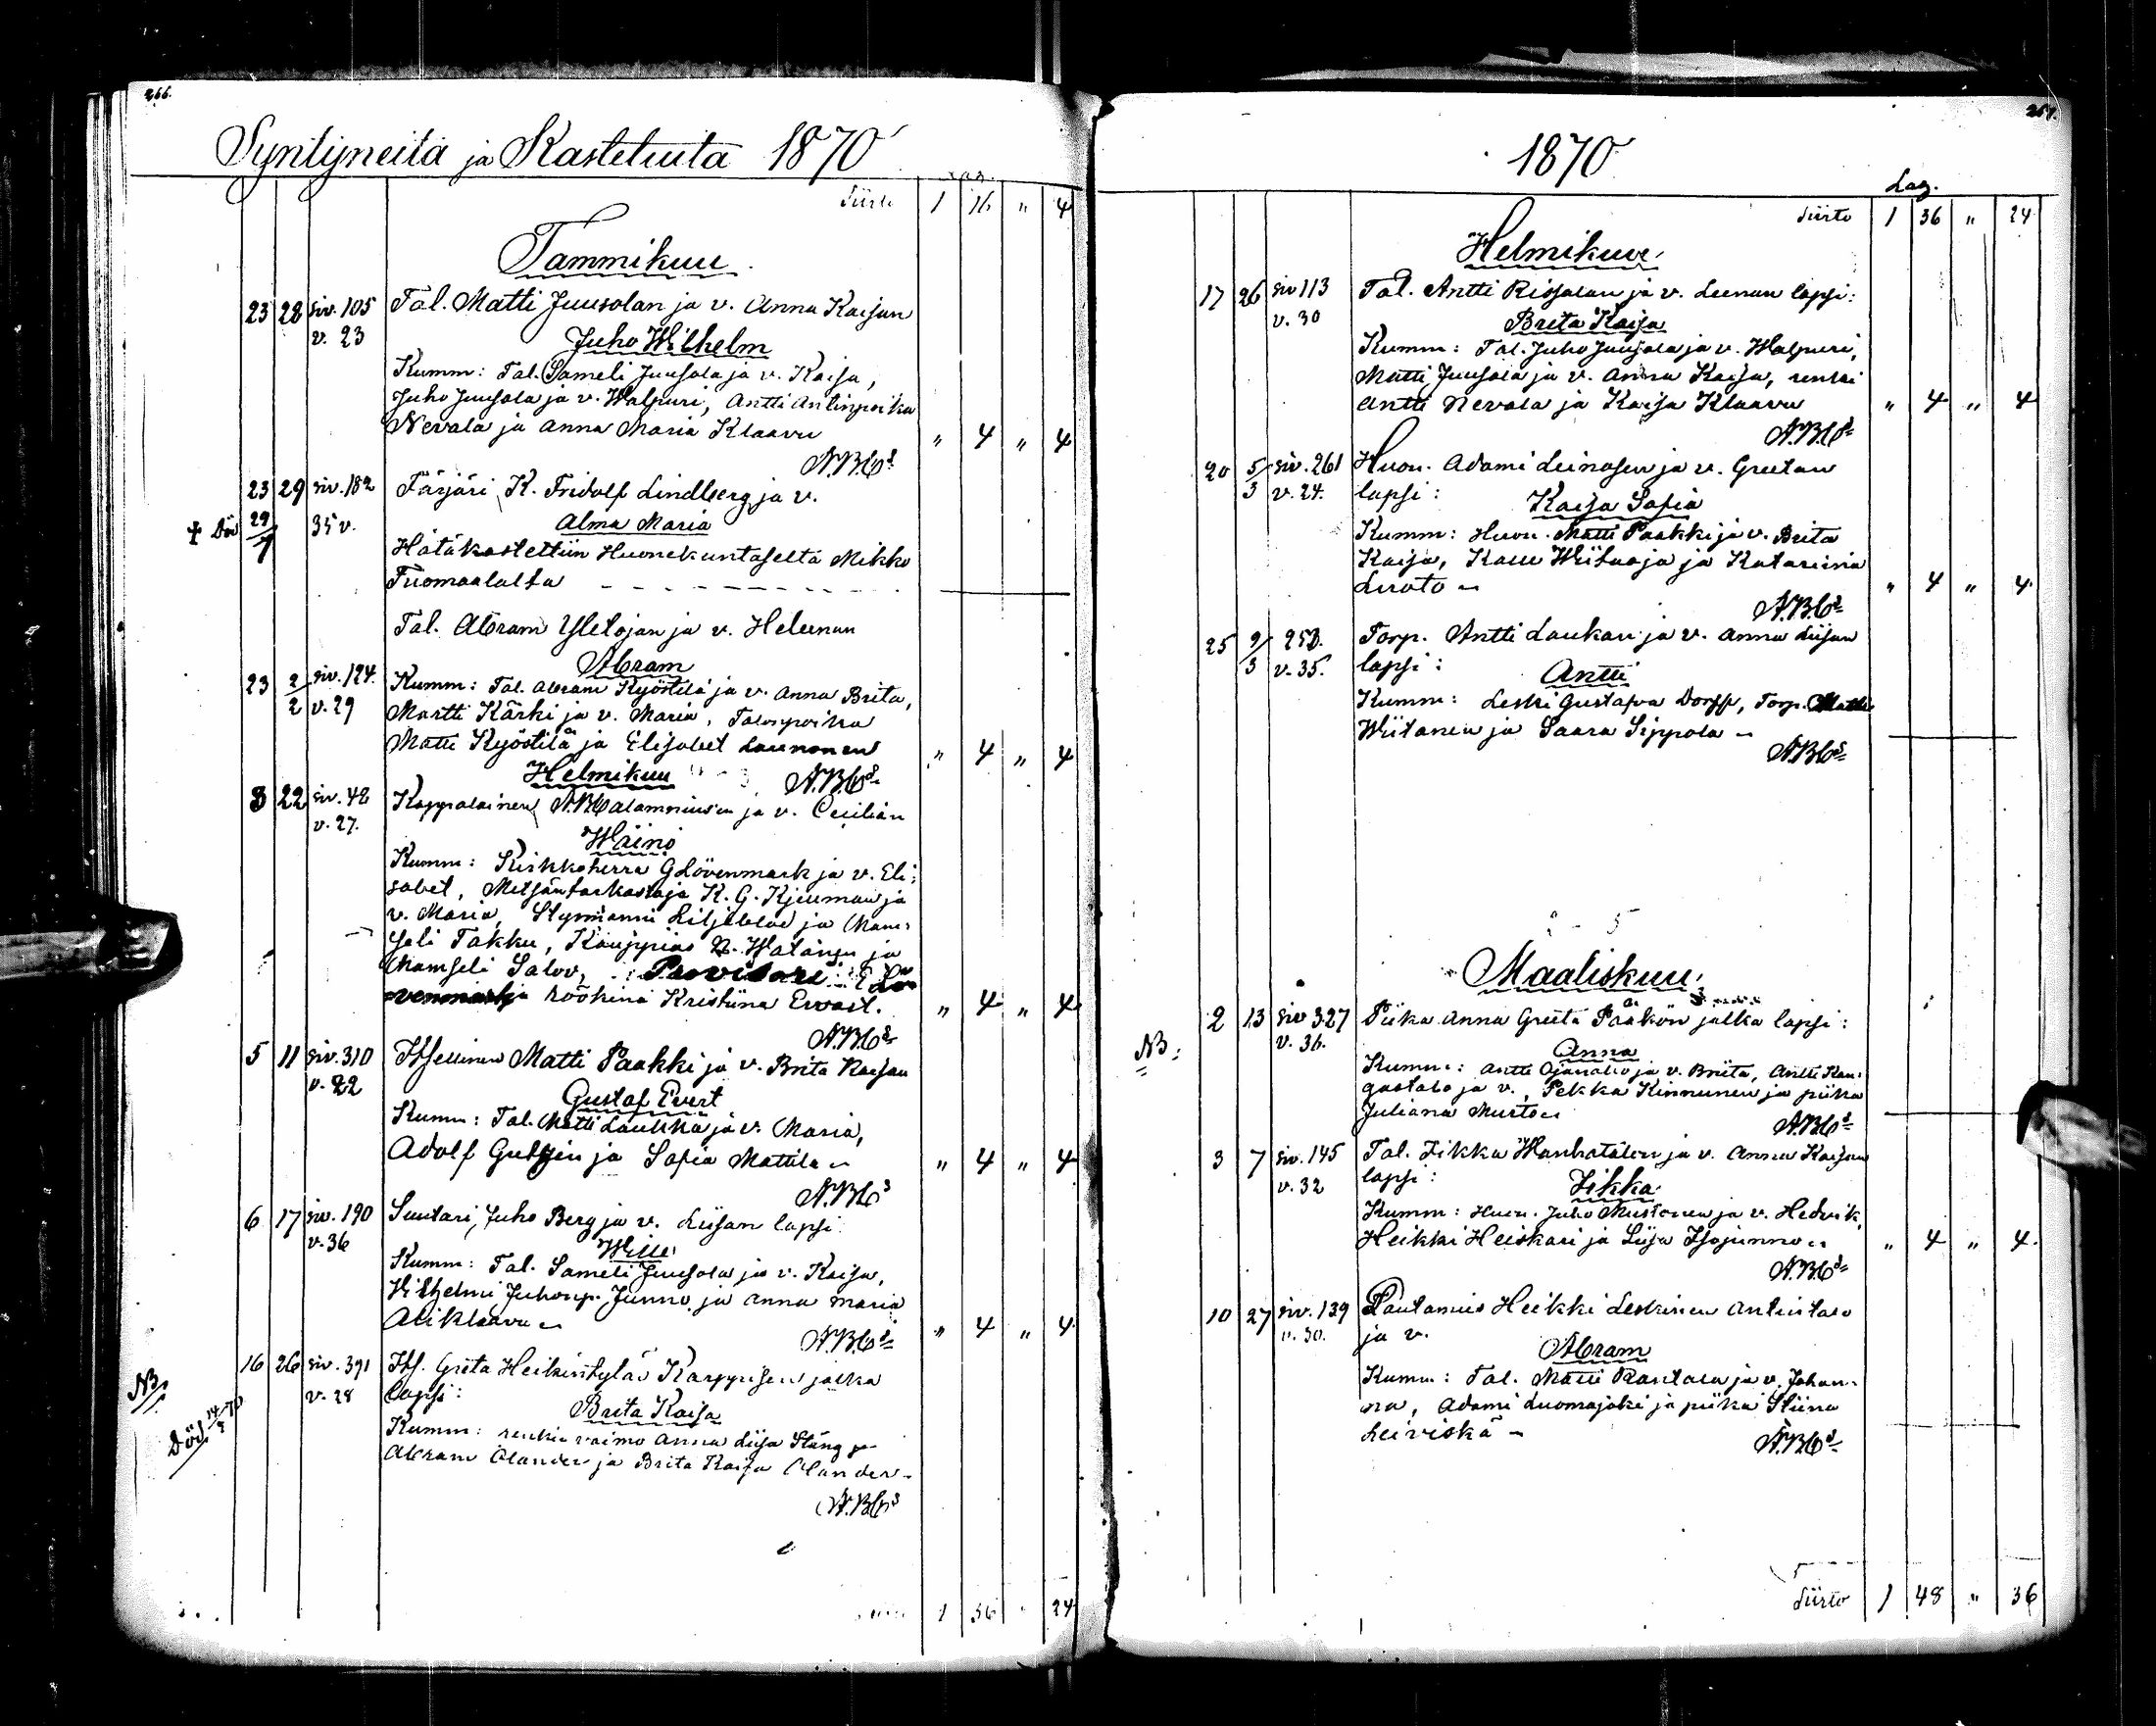 266.
Syntyneitä ja Kastetuita 1870
Siirto 1 16 " 4
Tammikuu
23 28 siv. 105 Tal. Matti Juusolan ja v. Anna Kaisan
v. 23 Juho Wilhelm
Kumm: Tal. Sameli Juusola ja v. Kaisa,
Juho Juusola ja v. Walpuri, Antti Antinpoika
Nevala ja Anna Maria Klaavu " 4 " 4
A.B.C.
23 29 siv. 182 Färjäri K. Fridolf Lindberg ja v.
† Död 29/7 35 v. Alma Maria
Hätäkastettiin Huonekuntaselta Mikko
Tuomaalalta
Tal. Abram Yletojan ja v. Heleenan
Abram
23 2/2 siv. 124. Kumm: Tal. Abram Kyöstilä ja v. Anna Brita,
v. 29 Martti Kärki ja v. Maria, Talonpoika
Matti Kyöstilä ja Elisabet Launonen " 4 " 4
Helmikuu A.B.C.
3 22 siv. 48 Kappalainen A.B. Calamniusen ja v. Cecilian
v. 27. Wäinö
Kumm: Kirkkoherra G Lövenmark ja v. Eli-
sabet, Metsäntarkastaja K. G. Kjerrman ja
v. Maria, Styrmanni Liljeblad ja Mam-
seli Takku, Kauppias N. Watanen ja
Mamseli Salov, Provisori E Lö-
venmark ja röökinä Kristiina Ervast. " 4 " 4
A.B.C.
5 11 siv. 310 Itsellinen Matti Paakki ja v. Brita Kaisan
v. 22 Gustaf Evert
Kumm: Tal. Matti Laukka ja v. Maria,
Adolf ja Sofia Mattila " 4 " 4
A.B.C.
6 17 siv. 190 Suutari Juho Berg ja v. Liisan lapsi
v. 36 Wille
Kumm: Tal. Sameli Juusola ja v. Kaisa,
Wilhelmi Juhonp. Junno ja Anna Maria
Aliklaavu " 4 " 4
A.B.C.
NB. 16 26 siv. 391 Its. Greta Heikintytär Karppisen jalka
v. 28 lapsi:
Död 14/3 70 Brita Kaisa
Kumm: renki vaimo Anna Liisa Stäng ja
Abram Olander ja Brita Kaisa Olander
A.B.C.
1 36 " 24
1870
Lag.
Siirto 1 36 " 24
Helmikuu
17 26 siv 113 Tal. Antti Rissalan ja v. Leenan lapsi:
v. 30 Brita Kaisa
Kumm: Tal. Juho Juusola ja v. Walpuri,
Matti Juusola ja v. Anna Kaisa, renki
Antti Nevala ja Kaisa Klaavu " 4 " 4
A.B.C.
20 5/3 siv. 261 Huon. Adami Leinosen ja v. Greetan
v. 24. lapsi: Kaisa Sofia
Kumm: Huon. Matti Paakki ja v. Brita
Kaisa, Kalle Wiitaoja ja Katariina
" 4 " 4
A.B.C.
25 9/3 253. Torp. Antti Laukan ja v. Anna Liisan
v. 35. lapsi: Antti
Kumm: Leski Gustafva Dorff, Torp. Matti
Wiitanen ja Saara Sippola
A.B.C.
Maaliskuu
2 13 siv 327 Piika Anna Greta Pääkön jalka lapsi:
NB: v. 36. Anna
Kumm: Antti Ojanaho ja v. Briita, Antti Kan-
gastalo ja v., Pekka Kinnunen ja piika
Juliana Murto
A.B.C.
3 7 siv. 145 Tal. Iikka Wanhatalon ja v. Anna Kaisan
v. 32 lapsi: Iikka
Kumm: Huon. Juho Mustonen ja v. Hedvik,
Heikki Heiskari ja Liisa Isojunno " 4 " 4
A.B.C.
10 27 siv. 139 Lautamies Heikki Leskinen Antintalo
v. 30. ja v.
Abram
Kumm: Tal. Matti Rantala ja v. Johan-
na, Adami Luomajoki ja piika Stiina
Leiviskä
A.B.C.
Siirto 1 48 " 36